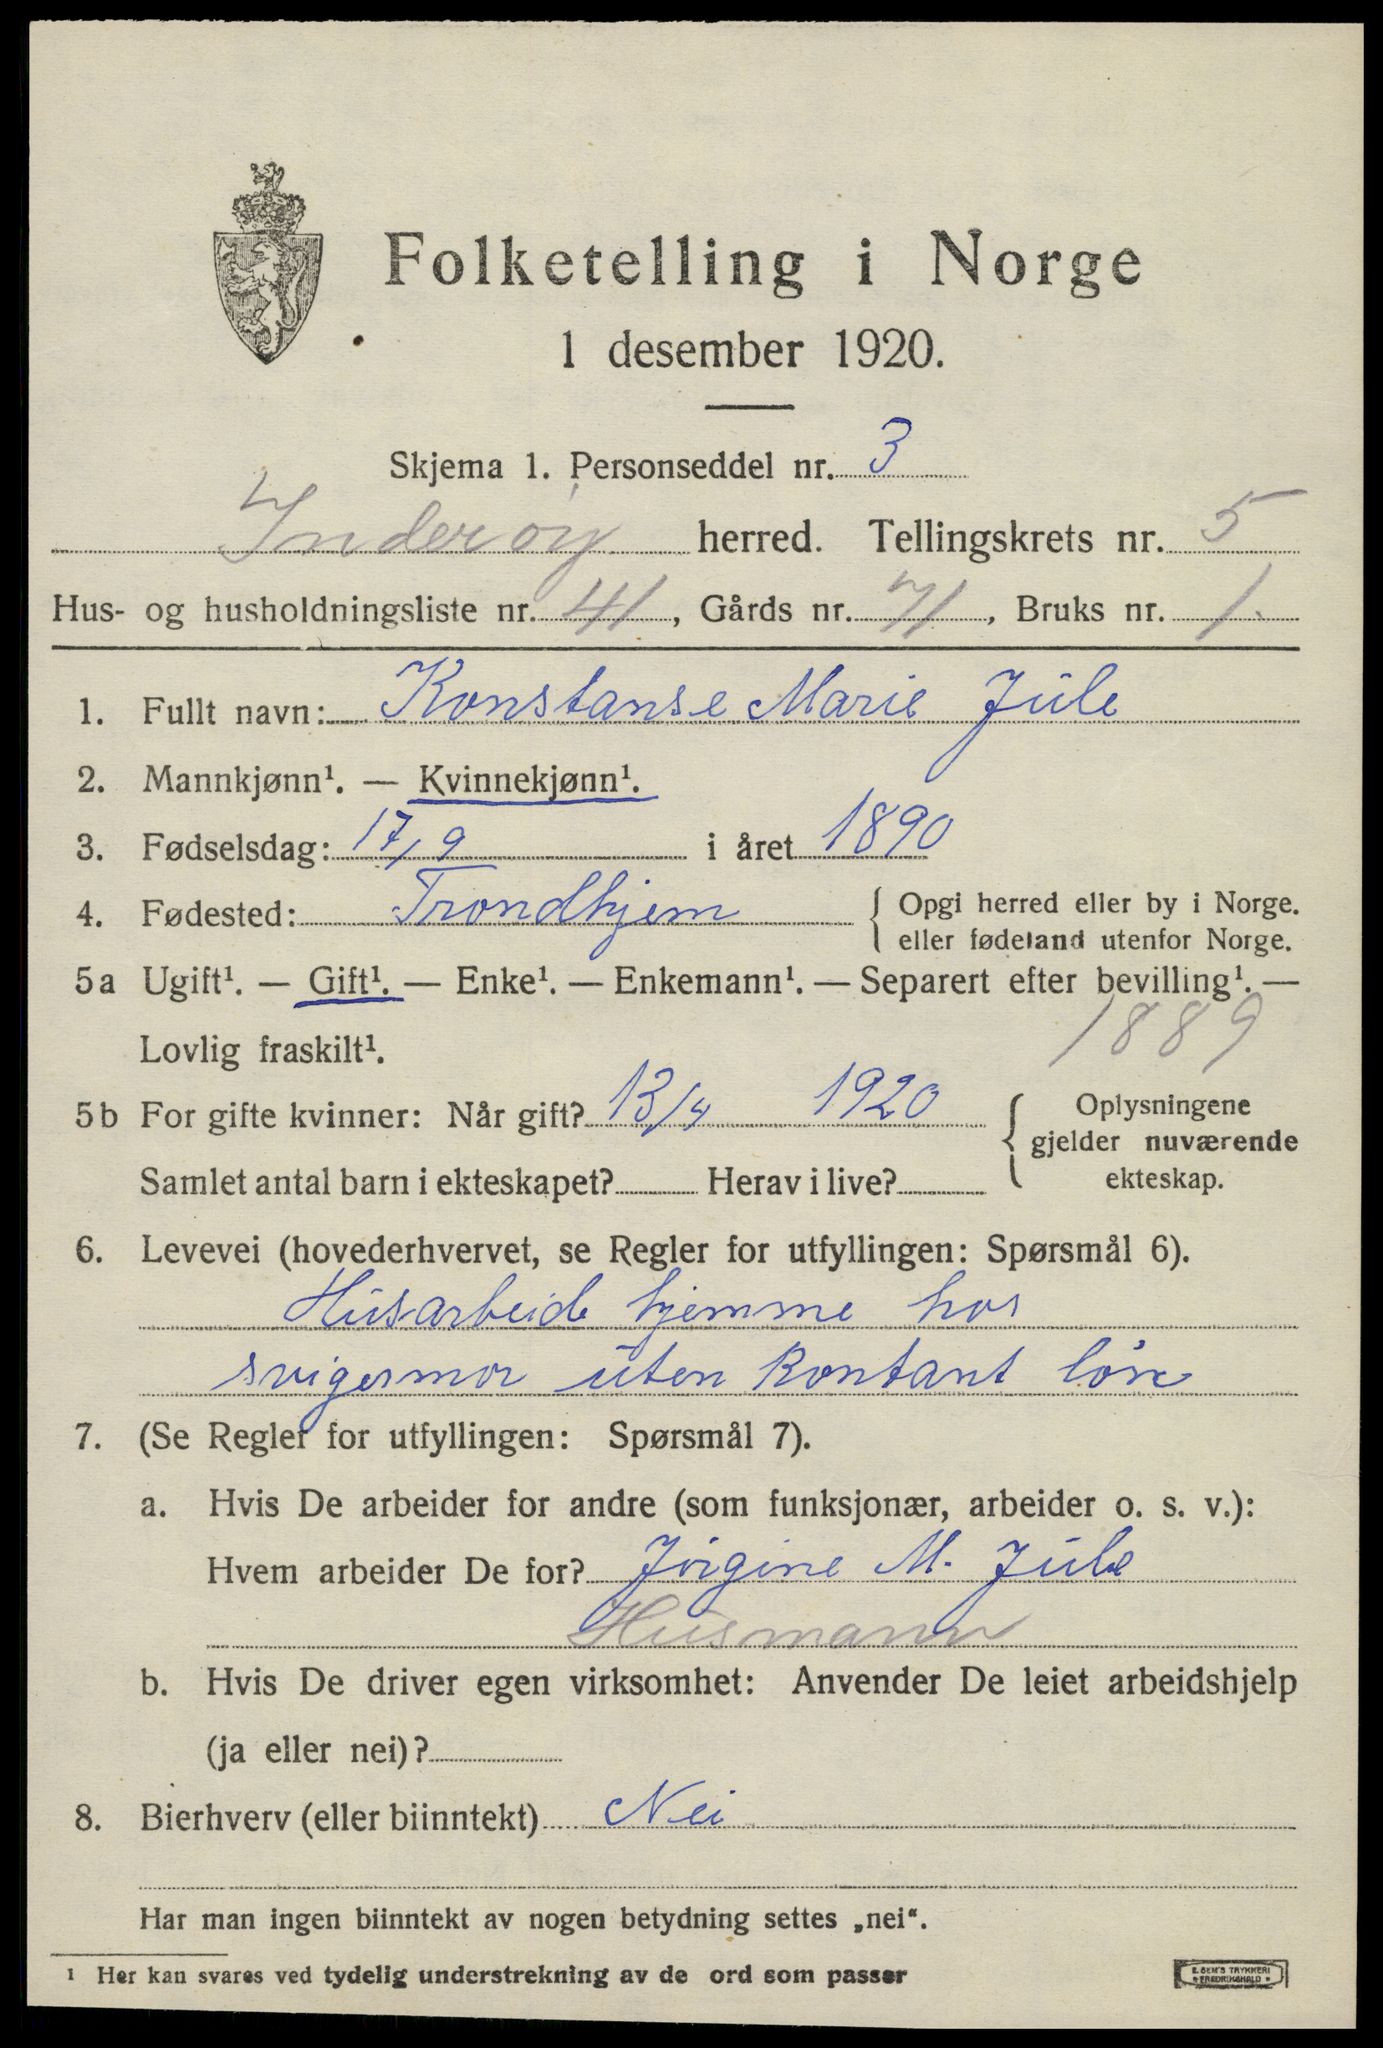 Folketelling i Norge
1 desember 1920.
Skjema 1. Personseddel nr. 3
Inderøy herred. Tellingskrets nr. 5
Hus- og husholdningsliste nr. 41, Gårds nr. 71, Bruks nr. 1.
1. Fullt navn: Konstanse Marie Jule
2. Mannkjønn¹. — Kvinnekjønn¹.
3. Fødselsdag: 17/9 i året 1890
4. Fødested: Trondhjem { Opgi herred eller by i Norge.
eller fødeland utenfor Norge.
5a Ugift¹. — Gift¹. — Enke¹. — Enkemann¹. — Separert efter bevilling¹. —
Lovlig fraskilt¹. 1889
5b For gifte kvinner: Når gift? 13/4 1920 { Oplysningene
gjelder nuværende
Samlet antal barn i ekteskapet? Herav i live? ekteskap.
6. Levevei (hovederhvervet, se Regler for utfyllingen: Spørsmål 6).
Husarbeide hjemme hos
svigermor uten kontant løn
7. (Se Regler for utfyllingen: Spørsmål 7).
a. Hvis De arbeider for andre (som funksjonær, arbeider o. s. v.):
Hvem arbeider De for? Jørgine M. Jule
Husmann
b. Hvis De driver egen virksomhet: Anvender De leiet arbeidshjelp
(ja eller nei)?
8. Bierhverv (eller biinntekt) Nei
Har man ingen biinntekt av nogen betydning settes „nei“.
¹ Her kan svares ved tydelig understrekning av de ord som passer
E. SEM'S TRYKKERI
FREDRIKSHALD